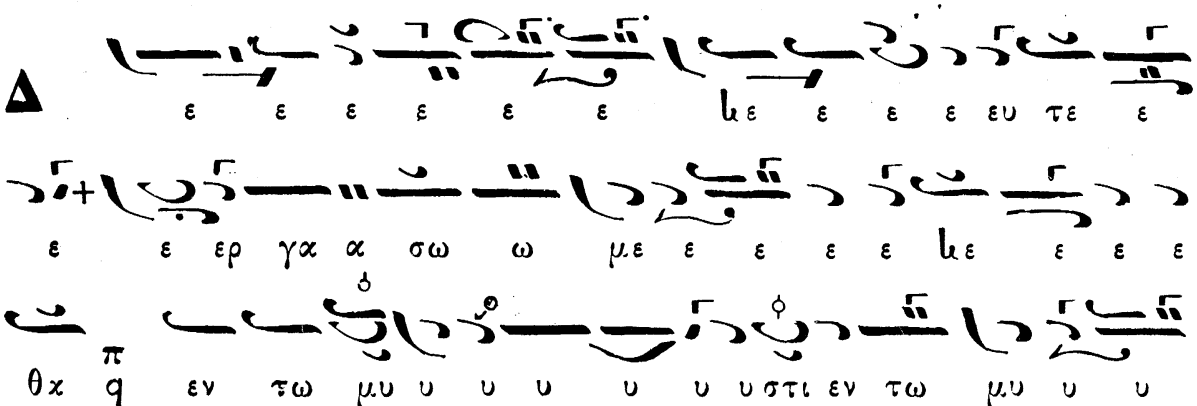 Δ ε ε ε ε ε ε κε ε ε ε ευ τε ε
ε ε ερ γα α σω ω με ε ε ε ε κε ε ε ε
θα π q εν τω μυ υ υ υ υ υ υ στι εν τω μυ υ υ